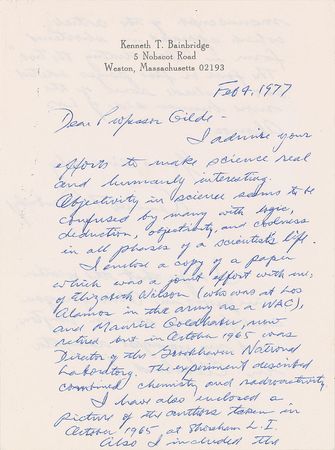 Kenneth T. Bainbridge
5 Nobscot Road
Weston, Massachusetts 02193
Feb 9, 1977
Dear Professor Gilde -
I admire your
efforts to make science real
and humanly interesting.
Objectivity in science seems to be
confused by many with logic,
deduction, objectivity, and coolness
in all phases of a scientist's life.
I enclose a copy of a paper
which was a joint effort with me;
of Elizabeth Wilson (who was at Los
Alamos in the army as a WAC),
and Maurice Goldhaber, now
retired but in October 1965 was
Director of the Brookhaven National
Laboratory. The experiment described
combined chemistry and radioactivity.
I have also enclosed a
picture of the authors taken in
October 1965 at Shoreham L.I.
Also I included the